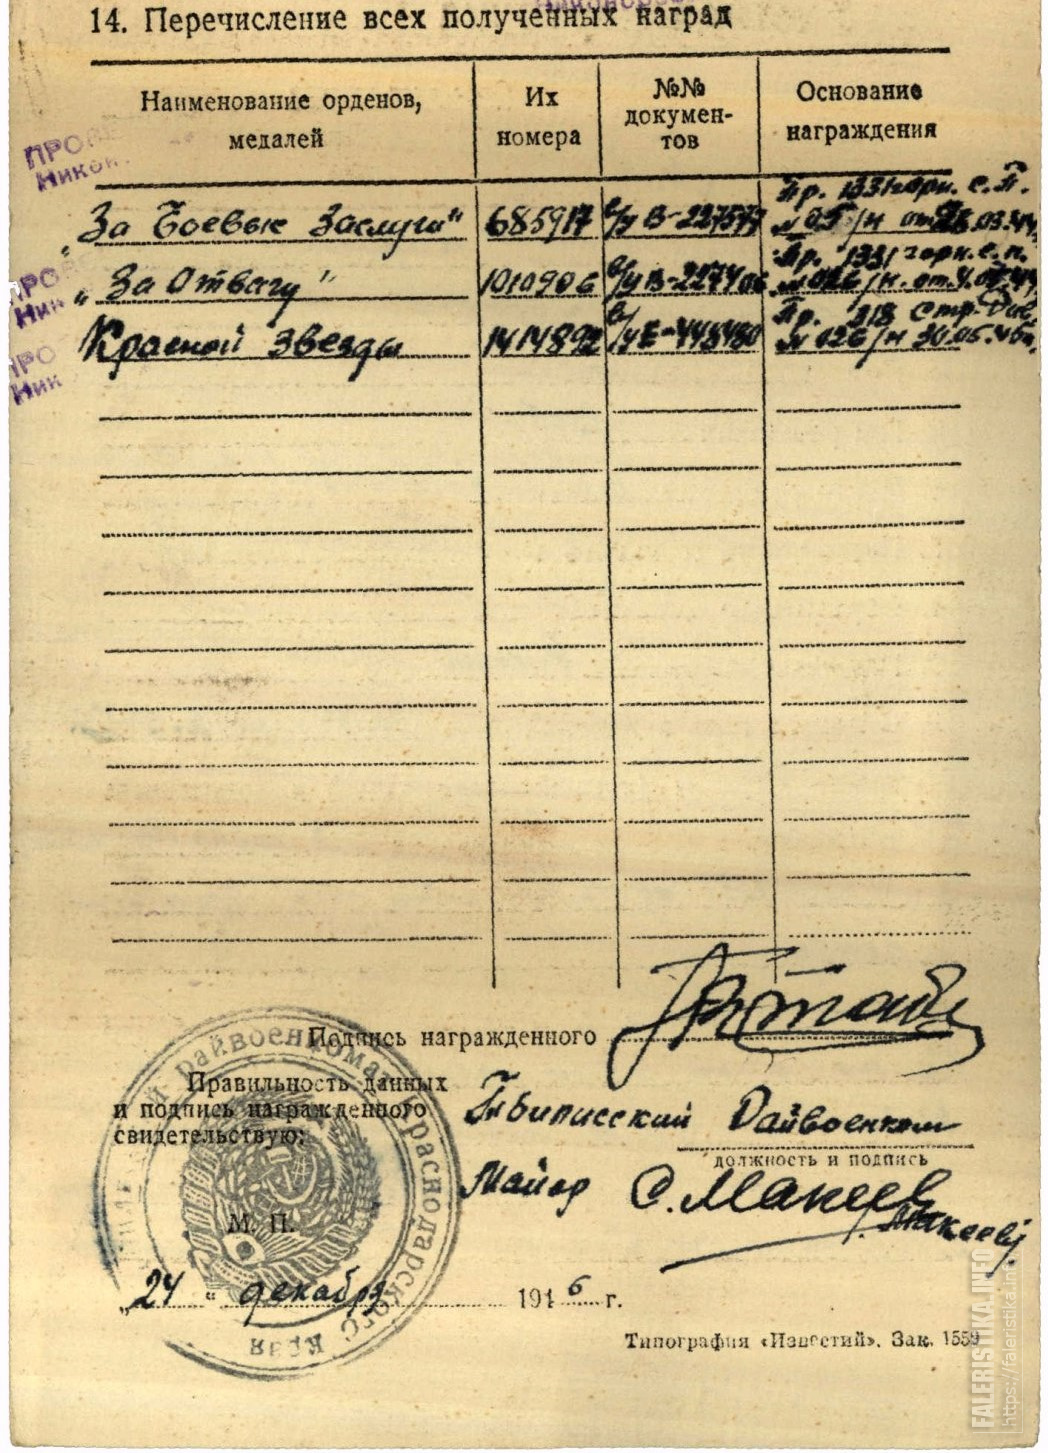 14. Перечисление всех полученных наград
Наименование орденов, медалей
Их номера
№№ докумен-тов
Основание награждения
„За Боевые Заслуги" 685917 в/у В-227577 Пр. 1331 горн. с. п. № 05/н от 28.03.44
„За Отвагу" 1010906 в/у В-227406 Пр. 1331 горн. с. п. № 026/н. от. 4.
Красной Звезды 1414892 в/у Е-448480 Пр. 318 Стр. Див. № 026/н 30.05.45г.
Подпись награжденного
Правильность данных
и подпись награжденного
свидетельствую:
Райвоенком
должность и подпись
Майор С. Макеев
/Макеев/
М. П.
райвоенкомат Краснодарского Края
„24" декабря 1946 г.
Типография «Известий». Зак. 1559
FALERISTIKA.INFO
https://faleristika.info